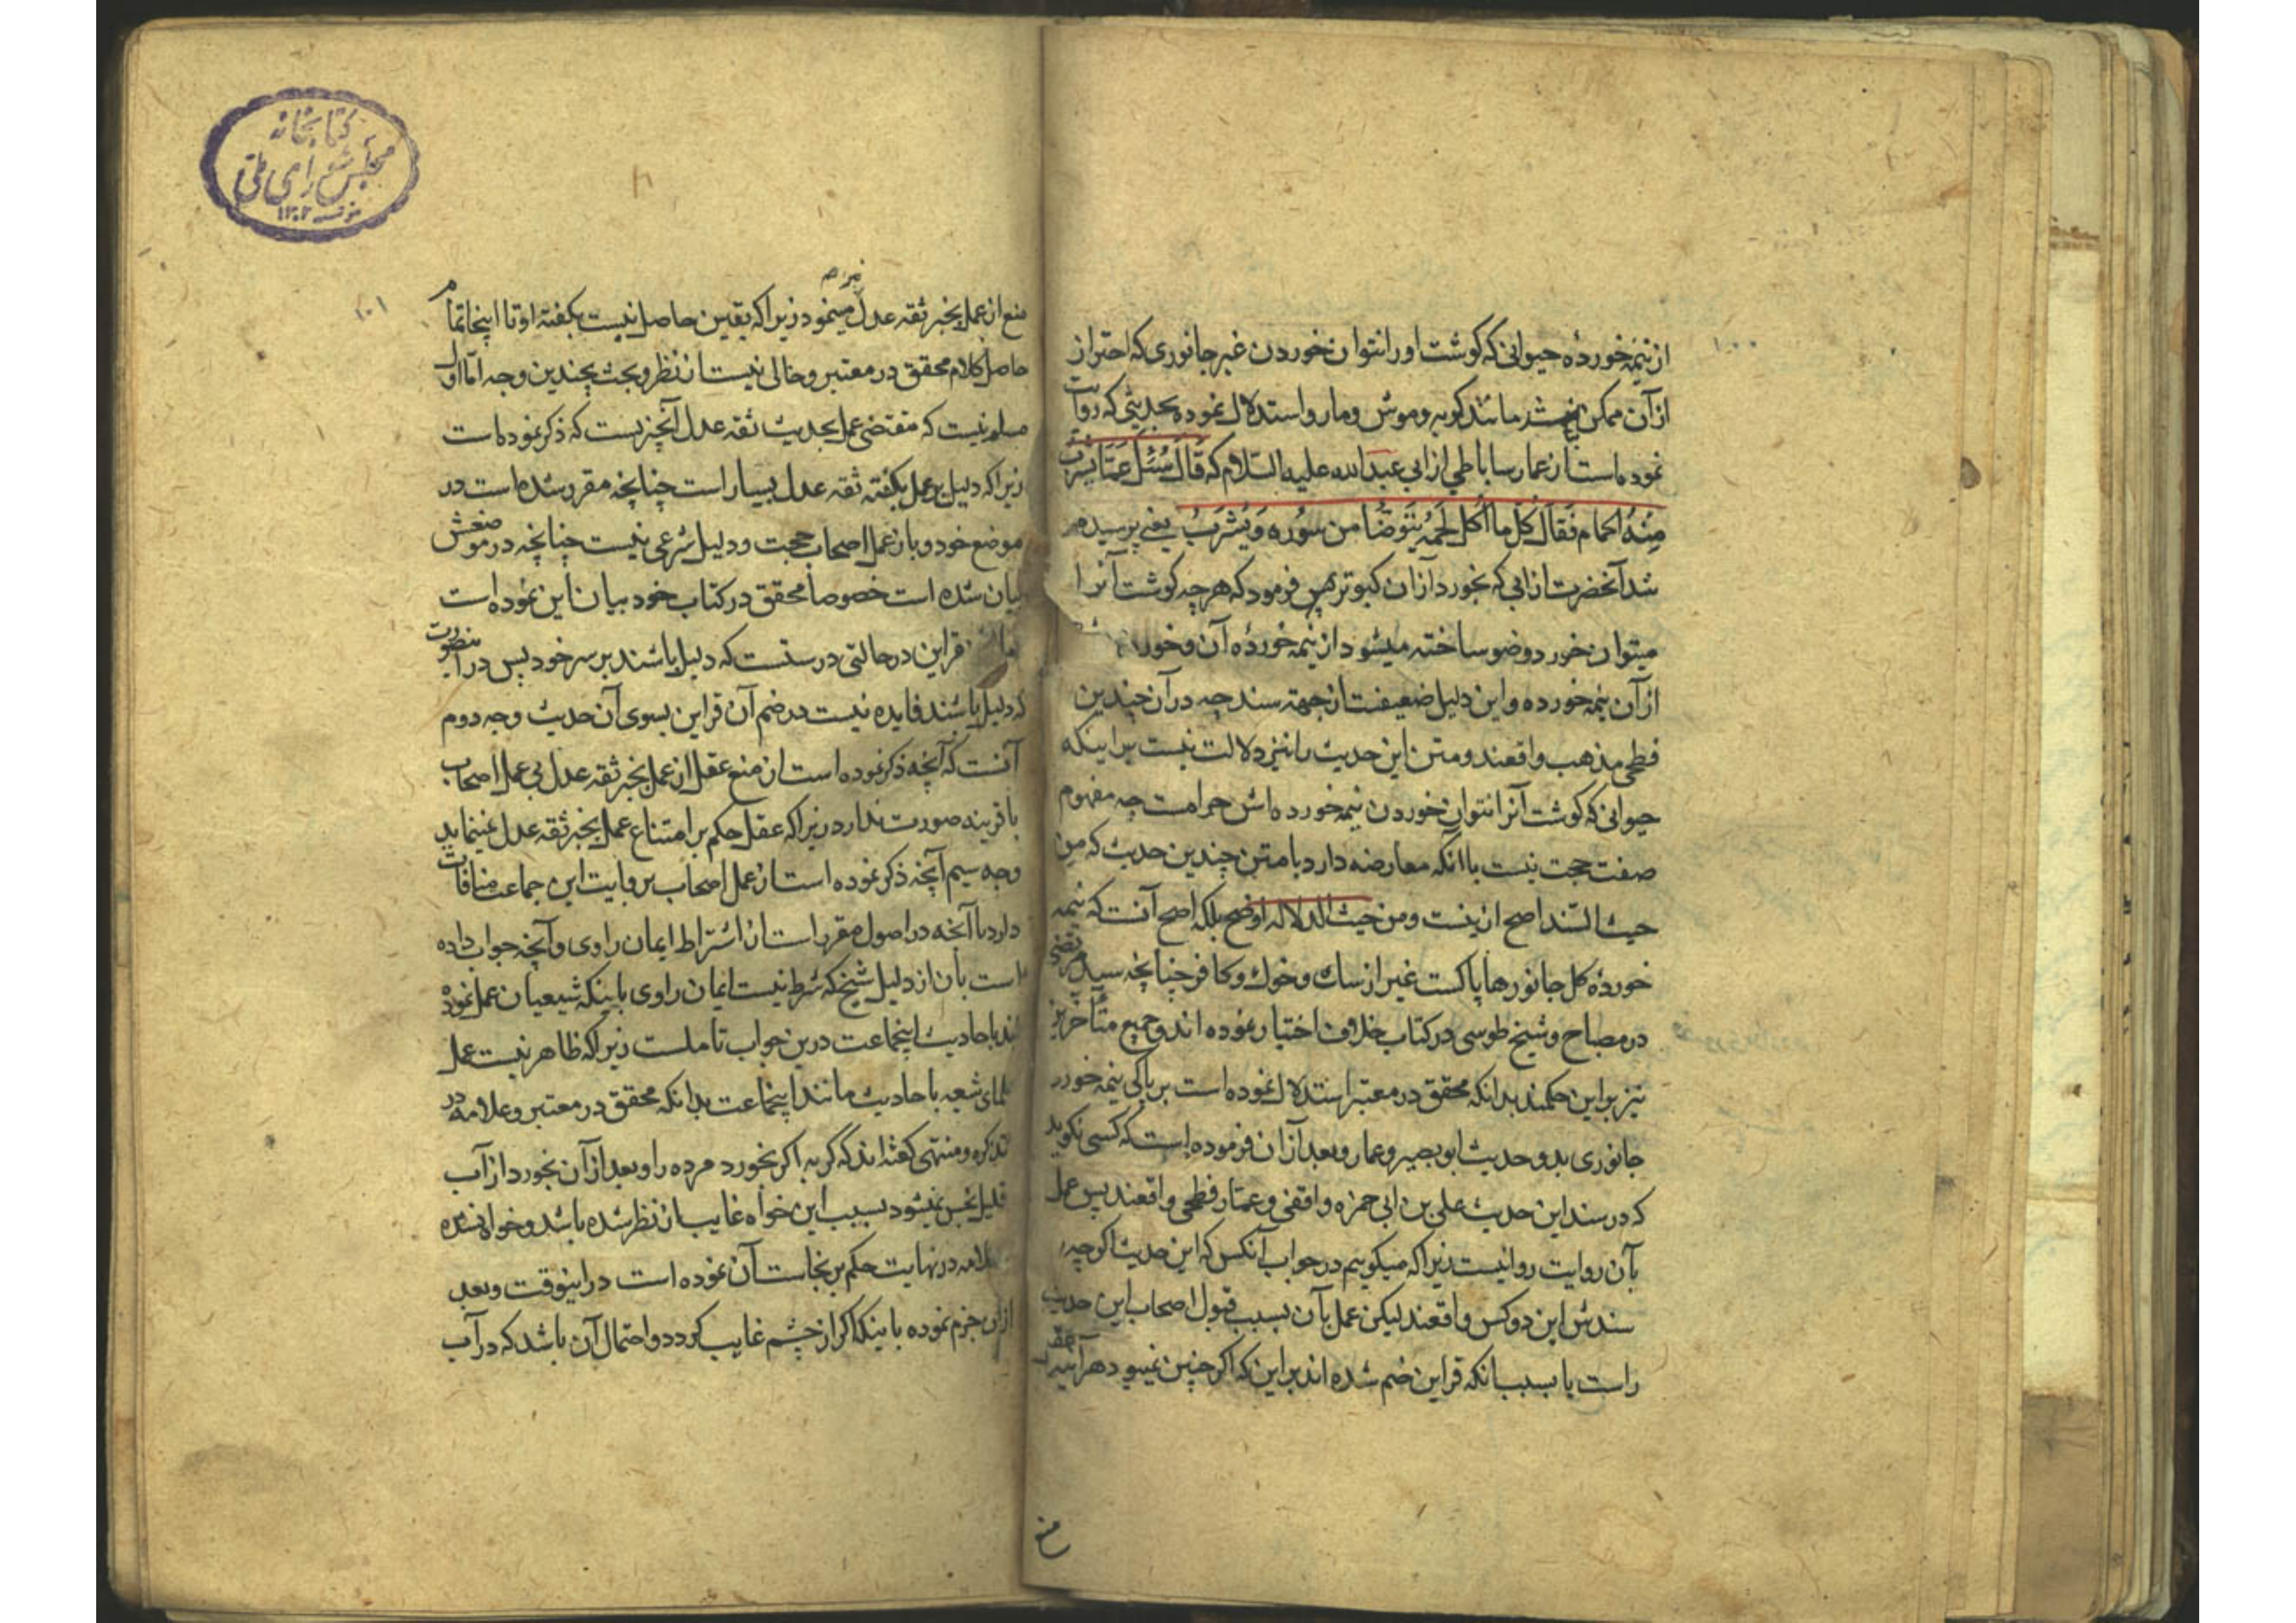 ۱۰۰
از نیمه خوردهٔ حیوانی که گوشت او را نتوان خوردن غیر جانوری که احتراز
از آن ممکن نباشد مانند کربه وموش ومار واستدلال نموده بحدیثی که روایت
نموده است از عمار ساباطی از ابی عبد الله علیه السّلام که قَالَ سُئِلَ عَمَّا یشرب
مِنْهُ الحمام فَقَالَ کُلّ ما اُکل لَحمُهُ یُتَوضّأ من سُوره وَیُشْرَبُ یعنی پرسیده
شد آنحضرت از ابی که بخورد از آن کبوتر پس فرمود که هر چه گوشت آنرا
میتوان خورد وضو ساخته میشود از نیمه خوردهٔ آن وخورد
از آن نیمه خورده واین دلیل ضعیفست از جهته سند چه در آن چندین
فطحی مذهب واقعند ومتن این حدیث را نیز دلالت نیست بر اینکه
حیوانی که گوشت آنرا نتوان خوردن نیمه خورده اش حرامست چه مفهوم
صفت حجت نیست با آنکه معارضه دارد با متن چندین حدیث که من
حیث السّند اصح از ینست ومن حیث الدلاله اوضح بلکه اصح آنست که نیمه
خوردهٔ کل جانورها پاکست غیر از سك وخوك وکافر چنانچه سید مرتضی
در مصباح وشیخ طوسی در کتاب خلاف اختیار نموده اند وجمیع متأخرین
نیز بر این حکمند بدانکه محقق در معتبر استدلال نموده است بر پاکی نیمه خورد
جانوری بدو حدیث ابو بصیر وعمار وبعد از آن فرموده است که کسی نکوید
که در سند این حدیث علی بن ابی حمزه واقفی وعمّار فطحی واقعند پس عمل
بآن روایت روا نیست زیرا که میکوییم در جواب آنکس که این حدیث اکرچه
سندش این دو کس واقعند لیکن عمل بآن بسبب قبول اصحاب این حدیث
راست یا بسبب انکه قراین ضم شده اند بر این که اکر چنین نمیبود هرآینه عقل
منع
کتابخانه
مجلس شورای ملی
۱۳۰۲
۱۰۱
منع از عمل بخبر ثقه عدل مینمود زیرا که یقین حاصل نیست بکفته او تا اینجا تمام
حاصل کلام محقق در معتبر وخالی نیست از نظر وبحث بچندین وجه امّا اول
مسلم نیست که مقتضی عمل بحدیث ثقه عدل آنچیزیست که ذکر نموده است
زیرا که دلیل بر عمل بکفته ثقه عدل بسیار است چنانچه مقرر شده است در
موضع خود وباز عمل اصحاب حجت ودلیل شرعی نیست چنانچه در موضعش
بیان شده است خصوصا محقق در کتاب خود بیان این نموده است
قراین در حالتی درستست که دلیل باشند بر سر خود پس در آنصورت
که دلیل باشند فایده نیست در ضم آن قراین بسوی آن حدیث وجه دوم
آنست که آنچه ذکر نموده است از منع عقل از عمل بخبر ثقه عدل بی عمل اصحاب
با قرینه صورت ندارد زیرا که عقل حکم بر امتناع عمل بخبر ثقه عدل نمینماید
وجه سیم آنچه ذکر نموده است از عمل اصحاب بروایت این جماعت منافات
دارد با آنچه در اصول مقرر است از اشتراط ایمان راوی وآنچه جواب داده
است بآن از دلیل شیخ که شرط نیست ایمان راوی باینکه شیعیان عمل نموده
اند باحادیث اینجماعت درین جواب تاملست زیرا که ظاهر نیست عمل
علمای شعیه باحادیث مانند اینجماعت بدانکه محقق در معتبر وعلامه در
تذکره ومنتهی کفته اند که کربه اکر بخورد مرده را وبعد از آن بخورد از آب
قلیل نجس نمیشود بسبب این خواه غایب از نظر شده باشد وخواه نشده
علامه در نهایت حکم بر نجاست آن نموده است در اینوقت وبعد
از آن جزم نموده باینکه اکر از چشم غایب کردد واحتمال آن باشد که در آب